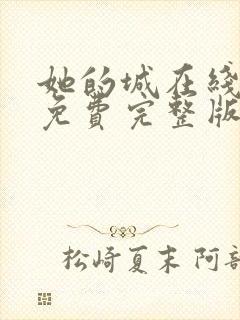 她的城在线
免費完整版
松崎夏末 阿部